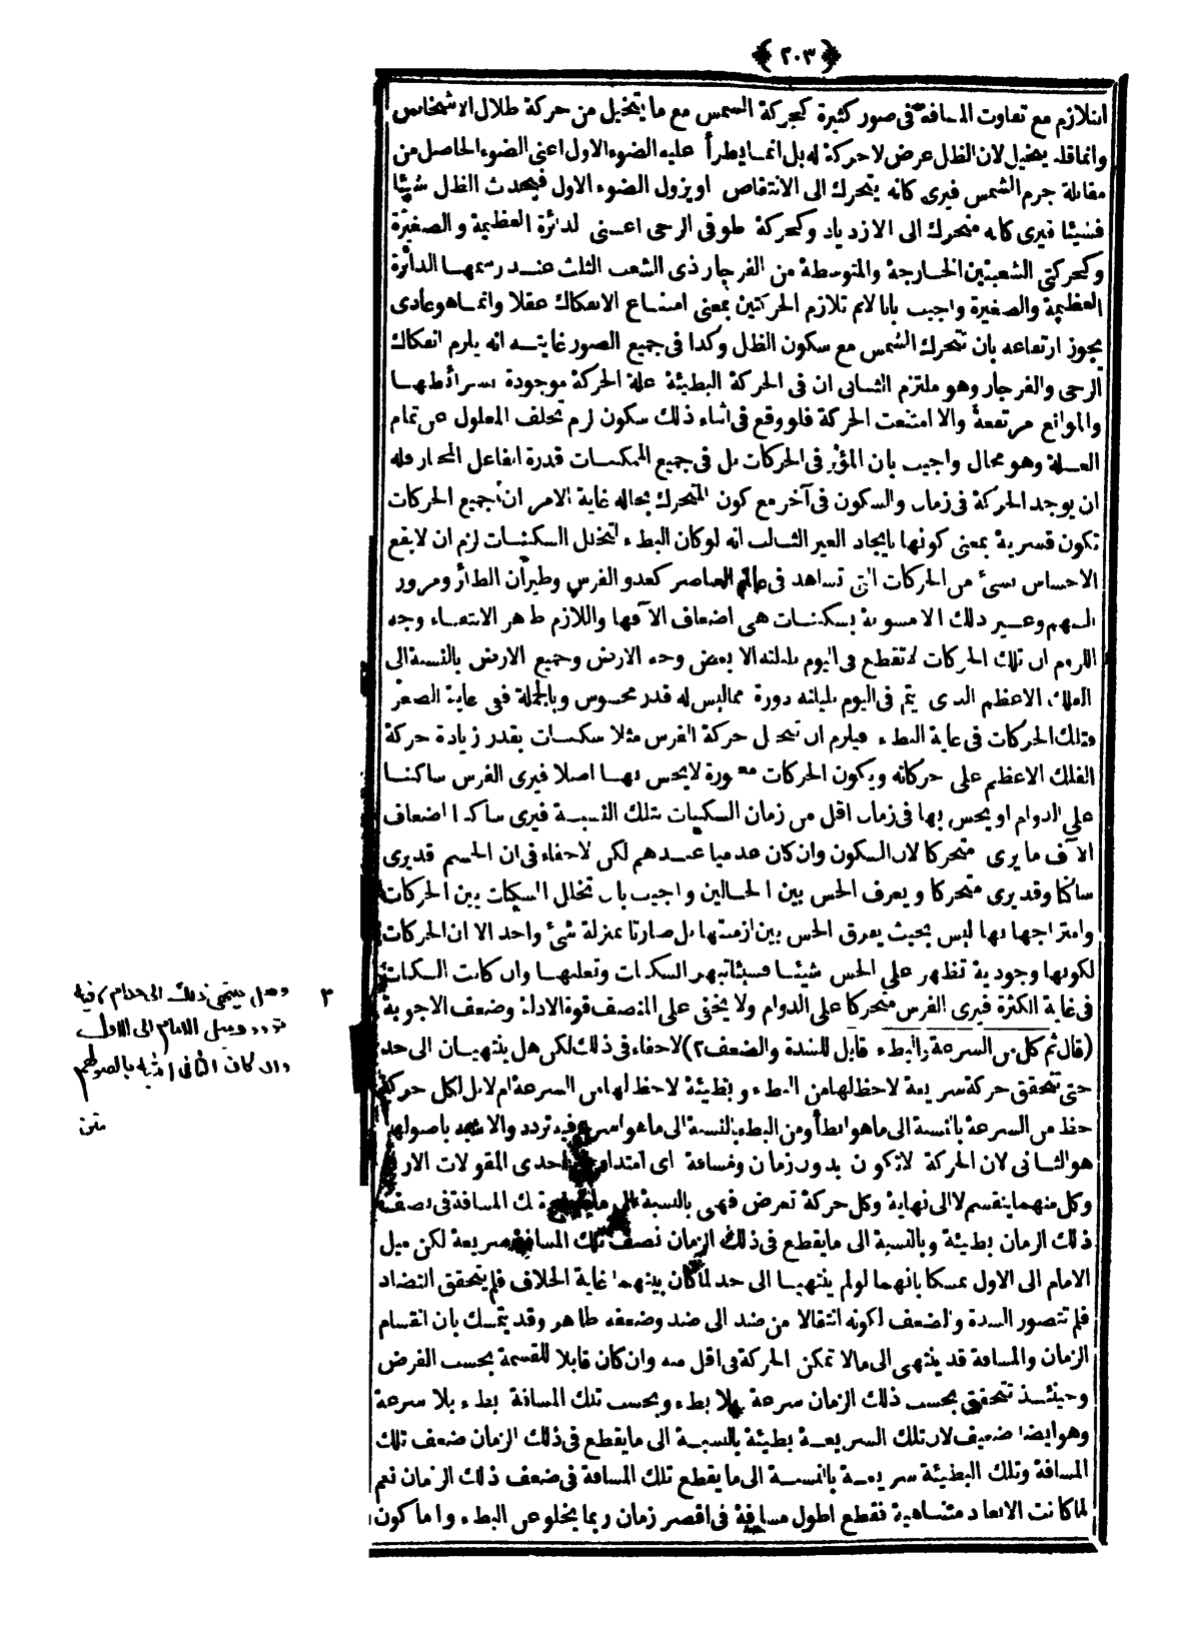 ﴿٢٠٣﴾
التلازم مع تفاوت المسافة فى صور كثيرة كحركة الشمس مع ما يتخيل من حركة ظلال الاشخاص
وانما قلنا يتخيل لان الظل عرض لا حركة له بل انما يطرأ عليه الضوء الاول اعنى الضوء الحاصل من
مقابلة جرم الشمس فيرى كانه يتحرك الى الانتقاص او يزول الضوء الاول فيحدث الظل شيئا
فشيئا فيرى كانه متحرك الى الازدياد وكحركة طوقى الرحى اعنى الدائرة العظيمة والصغيرة
وكحركتى الشعبتين الخارجة والمتوسطة من الفرجار ذى الشعب الثلث عند رسمهما الدائرة
العظيمة والصغيرة واجيب بانا لانم تلازم الحركتين بمعنى امتناع الانفكاك عقلا وانما هو عادى
يجوز ارتفاعه بان تتحرك الشمس مع سكون الظل وكذا فى جميع الصور غايته انه يلزم انفكاك
الرحى والفرجار وهو ملتزم الثانى ان فى الحركة البطيئة علة الحركة موجودة بشرائطها
والموانع مرتفعة والا امتنعت الحركة فلو وقع فى اثناء ذلك سكون لزم تخلف المعلول عن تمام
العلة وهو محال واجيب بان المؤثر فى الحركات بل فى جميع الممكنات قدرة الفاعل المختار فله
ان يوجد الحركة فى زمان والسكون فى آخر مع كون المتحرك بحاله غاية الامر ان جميع الحركات
تكون قسرية بمعنى كونها بايجاد الغير الثالث انه لو كان البطء لتخلل السكنات لزم ان لا يقع
الاحساس بشئ من الحركات التى تشاهد فى عالم العناصر كعدو الفرس وطيران الطائر ومرور
السهم وغير ذلك الا مشوبة بسكنات هى اضعاف آلافها واللازم ظاهر الانتفاء وجه
اللزوم ان تلك الحركات لا تقطع فى اليوم بليلته الا بعض وجه الارض وجميع الارض بالنسبة الى
الفلك الاعظم الذى يتم فى اليوم بليلته دورة مما ليس له قدر محسوس وبالجملة فهى غاية الصغر
فتلك الحركات فى غاية البطء فيلزم ان تتخلل حركة الفرس مثلا سكنات بقدر زيادة حركة
الفلك الاعظم على حركاته ويكون الحركات مغمورة لا يحس بها اصلا فيرى الفرس ساكنا
على الدوام او يحس بها فى زمان اقل من زمان السكنات بتلك النسبة فيرى ساكنا اضعاف
آلاف ما يرى متحركا لان السكون وان كان عدميا عندهم لكن لا خفاء فى ان الجسم قد يرى
ساكنا وقد يرى متحركا ويعرف الحس بين الحالين واجيب بان تخلل السكنات بين الحركات
وامتزاجها بها ليس بحيث يفرق الحس بين ازمنتها بل صارتا بمنزلة شئ واحد الا ان الحركات
لكونها وجودية تظهر على الحس شيئا فشيئا تبهر السكنات وتغلبها وان كانت السكنات
فى غاية الكثرة فيرى الفرس متحركا على الدوام ولا يخفى على المنصف قوة الادلة وضعف الاجوبة
(قال ثم كل من السرعة والبطء قابل للشدة والضعف ٢) لا خفاء فى ذلك لكن هل ينتهيان الى حد
حتى تتحقق حركة سريعة لا حظ لها من البطء وبطيئة لا حظ لها من السرعة ام لا بل لكل حركة
حظ من السرعة بالنسبة الى ما هو ابطأ ومن البطء بالنسبة الى ما هو اسرع فيه تردد والاشبه باصولهم
هو الثانى لان الحركة لا تكون بدون زمان ومسافة اى امتداد من احدى المقولات الاربع
وكل منهما ينقسم لا الى نهاية وكل حركة تعرض فهى بالنسبة الى ما يقطع تلك المسافة فى نصف
ذلك الزمان بطيئة وبالنسبة الى ما يقطع فى ذلك الزمان نصف تلك المسافة سريعة لكن ميل
الامام الى الاول تمسكا بانهما لو لم ينتهيا الى حد لما كان بينهما غاية الخلاف فلم يتحقق التضاد
فلم تتصور الشدة والضعف لكونه انتقالا من ضد الى ضد وضعفه ظاهر وقد يتمسك بان انقسام
الزمان والمسافة قد ينتهى الى ما لا تمكن الحركة فى اقل منه وان كان قابلا للقسمة بحسب الفرض
وحينئذ تتحقق بحسب ذلك الزمان سرعة بلا بطء وبحسب تلك المسافة بطء بلا سرعة
وهو ايضا ضعيف لان تلك السريعة بطيئة بالنسبة الى ما يقطع فى ذلك الزمان ضعف تلك
المسافة وتلك البطيئة سريعة بالنسبة الى ما يقطع تلك المسافة فى ضعف ذلك الزمان نعم
لما كانت الابعاد متناهية فقطع اطول مسافة فى اقصر زمان ربما يخلو عن البطء واما كون
٢ وهل ينتهى ذلك الى حد ام لا فيه
تردد وميل الامام الى الاول
وان كان الثانى اشبه باصولهم
متن